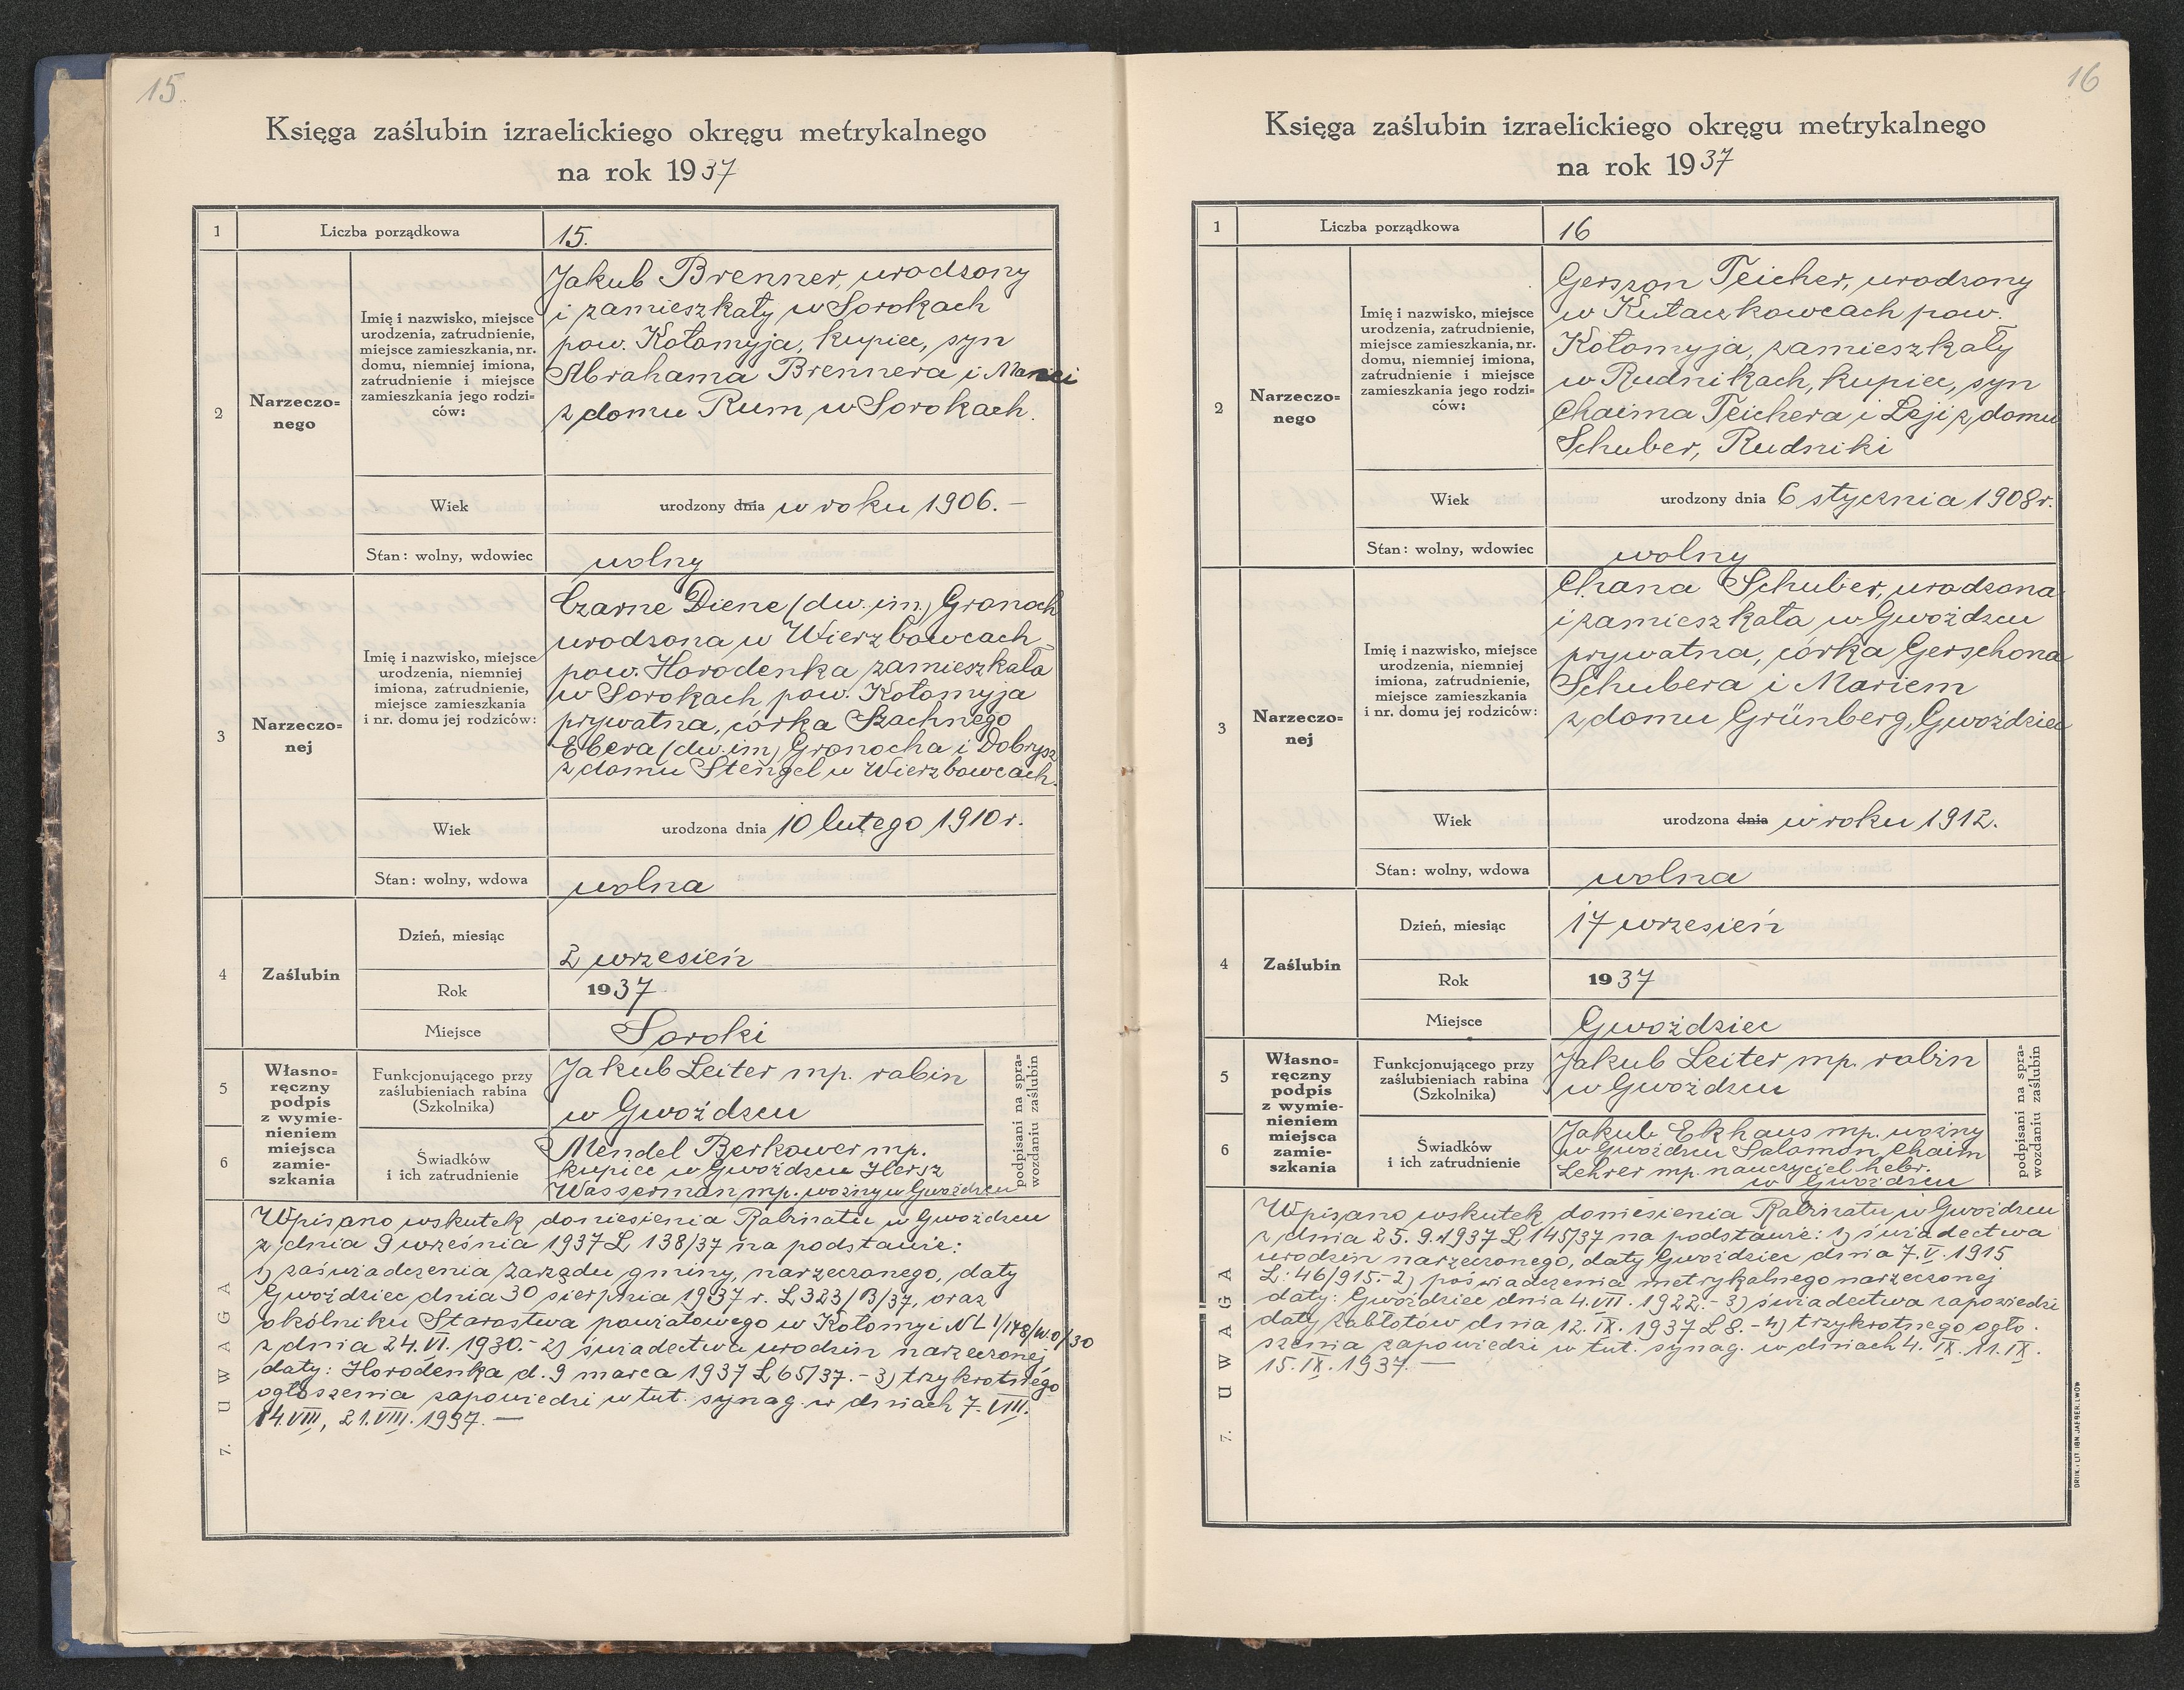 15.
Księga zaślubin izraelickiego okręgu metrykalnego
na rok 1937
1
Liczba porządkowa
15.
2
Narzeczo=
nego
Imię i nazwisko, miejsce
urodzenia, zatrudnienie,
miejsce zamieszkania, nr.
domu, niemniej imiona,
zatrudnienie i miejsce
zamieszkania jego rodzi-
ców:
Jakub Brenner, urodzony
i zamieszkały w Sorokach
pow. Kołomyja, kupiec, syn
Abrahama Brennera i
z domu Rum, w Sorokach.
Wiek
urodzony dnia w roku 1906. –
Stan: wolny, wdowiec
wolny
3
Narzeczo=
nej
Imię i nazwisko, miejsce
urodzenia, niemniej
imiona, zatrudnienie,
miejsce zamieszkania
i nr. domu jej rodziców:
Czarne Diene (dw. im.) Gronoch
urodzona w Wierzbowcach
pow. Horodenka zamieszkała
w Sorokach pow. Kołomyja
prywatna, córka Szachnego
Ebera (dw. im) Gronocha i Dobrysz
z domu Stengel w Wierzbowcach.
Wiek
urodzona dnia 10 lutego 1910 r.
Stan: wolny, wdowa
wolna
4
Zaślubin
Dzień, miesiąc
2 wrzesień
Rok
1937
Miejsce
Soroki
5
6
Własno=
ręczny
podpis
z wymie-
nieniem
miejsca
zamie-
szkania
Funkcjonującego przy
zaślubieniach rabina
(Szkolnika)
Jakub Leiter mp. rabin
w Gwoźdzcu
Świadków
i ich zatrudnienie
Mendel Berkower mp.
kupiec w Gwoźdzcu Hersz
Wasserman mp. woźny w Gwoźdzcu
podpisani na spra-
wozdaniu zaślubin
7. UWAGA
Wpisano wskutek doniesienia Rabinatu w Gwoźdzcu
z dnia 9 września 1937 L 138/37 na podstawie:
1) zaświadczenia Zarządu gminy, narzeczonego, daty
Gwoździec dnia 30 sierpnia 1937 r. L 323/B/37, oraz
okólniku Starostwa powiatowego w Kołomyi 1/148/W.0/30
z dnia 24. VI. 1930. - 2) świadectwa urodzin narzeczonej
daty: Horodenka d. 9 marca 1937 L 65/37. - 3) trzykrotnego
ogłoszenia zapowiedzi w tut. synag. w dniach 7. VIII.
14. VIII, 21. VIII. 1937. —
16
Księga zaślubin izraelickiego okręgu metrykalnego
na rok 1937
1
Liczba porządkowa
16
2
Narzeczo=
nego
Imię i nazwisko, miejsce
urodzenia, zatrudnienie,
miejsce zamieszkania, nr.
domu, niemniej imiona,
zatrudnienie i miejsce
zamieszkania jego rodzi-
ców:
Gerszon Teicher, urodzony
w Kułaczkowcach pow.
Kołomyja, zamieszkały
w Rudnikach, kupiec, syn
Chaima Teichera i Leji z domu
Schuber, Rudniki
Wiek
urodzony dnia 6 stycznia 1908 r.
Stan: wolny, wdowiec
wolny
3
Narzeczo=
nej
Imię i nazwisko, miejsce
urodzenia, niemniej
imiona, zatrudnienie,
miejsce zamieszkania
i nr. domu jej rodziców:
Chana Schuber, urodzona
i zamieszkała w Gwoźdzcu
prywatna, córka Gerschona
Schubera i Mariem
z domu Grünberg, Gwoździec
Wiek
urodzona dnia w roku 1912.
Stan: wolny, wdowa
wolna
4
Zaślubin
Dzień, miesiąc
17 wrzesień
Rok
1937
Miejsce
Gwoździec
5
6
Własno=
ręczny
podpis
z wymie-
nieniem
miejsca
zamie-
szkania
Funkcjonującego przy
zaślubieniach rabina
(Szkolnika)
Jakub Leiter mp. rabin
w Gwoźdzcu
Świadków
i ich zatrudnienie
Jakub Ekhaus mp. woźny
w Gwoźdzcu Salamon Chaim
Lehrer mp. nauczyciel hebr.
w Gwoźdzcu
podpisani na spra-
wozdaniu zaślubin
7. UWAGA
Wpisano wskutek doniesienia Rabinatu w Gwoźdzcu
z dnia 25. 9. 1937 L 145/37 na podstawie: 1) świadectwa
urodzin narzeczonego, daty Gwoździec dnia 7. V. 1915
L: 46/915. - 2) poświadczenia metrykalnego narzeczonej
daty: Gwoździec dnia 4. VII. 1922. - 3) świadectwa zapowiedzi
daty Zabłotów dnia 12. IX. 1937 L 8. - 4) trzykrotnego ogło-
szenia zapowiedzi w tut. synag. w dniach 4. IX. 11. IX.
15. IX. 1937. —
DRUK. I LIT. IGN. JAEGER, LWÓW